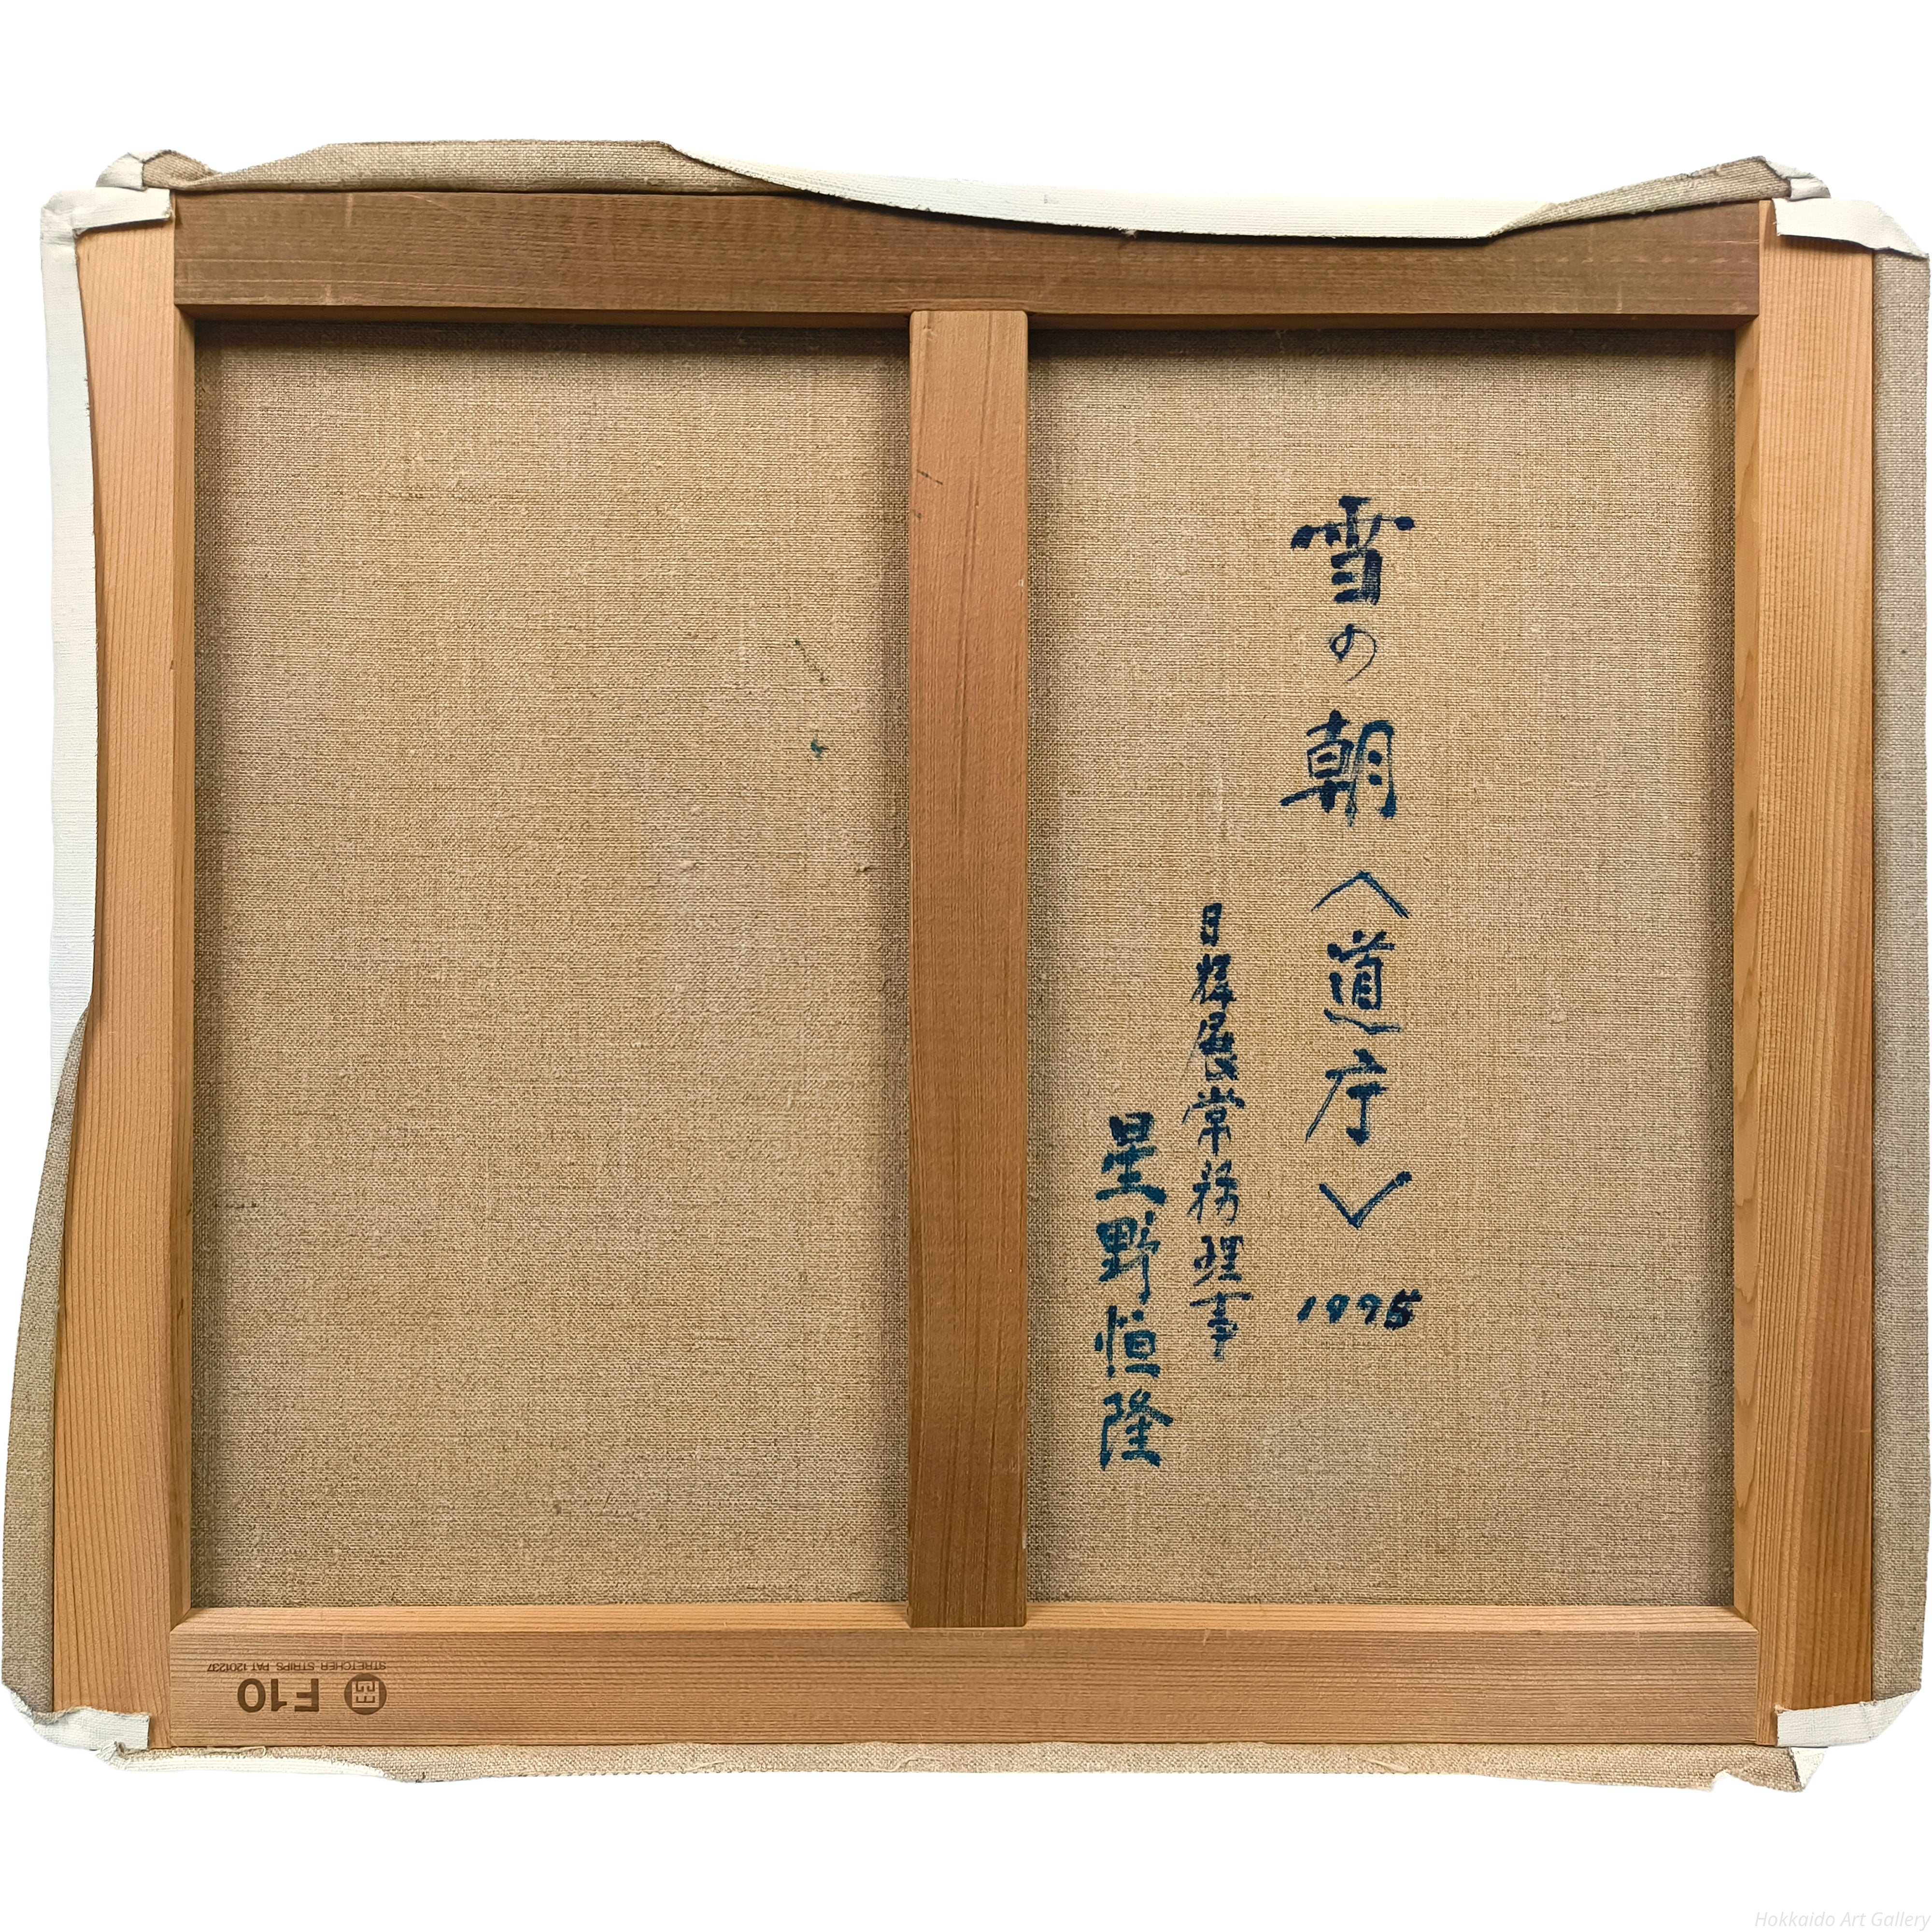 雪の朝〈道庁〉 1995
日輝展常務理事
星野恒隆
STRETCHER STRIPS PAT 1201237
F10
Hokkaido Art Gallery